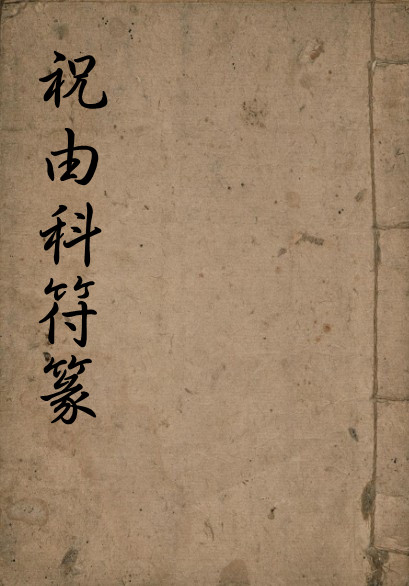 祝由科符篆